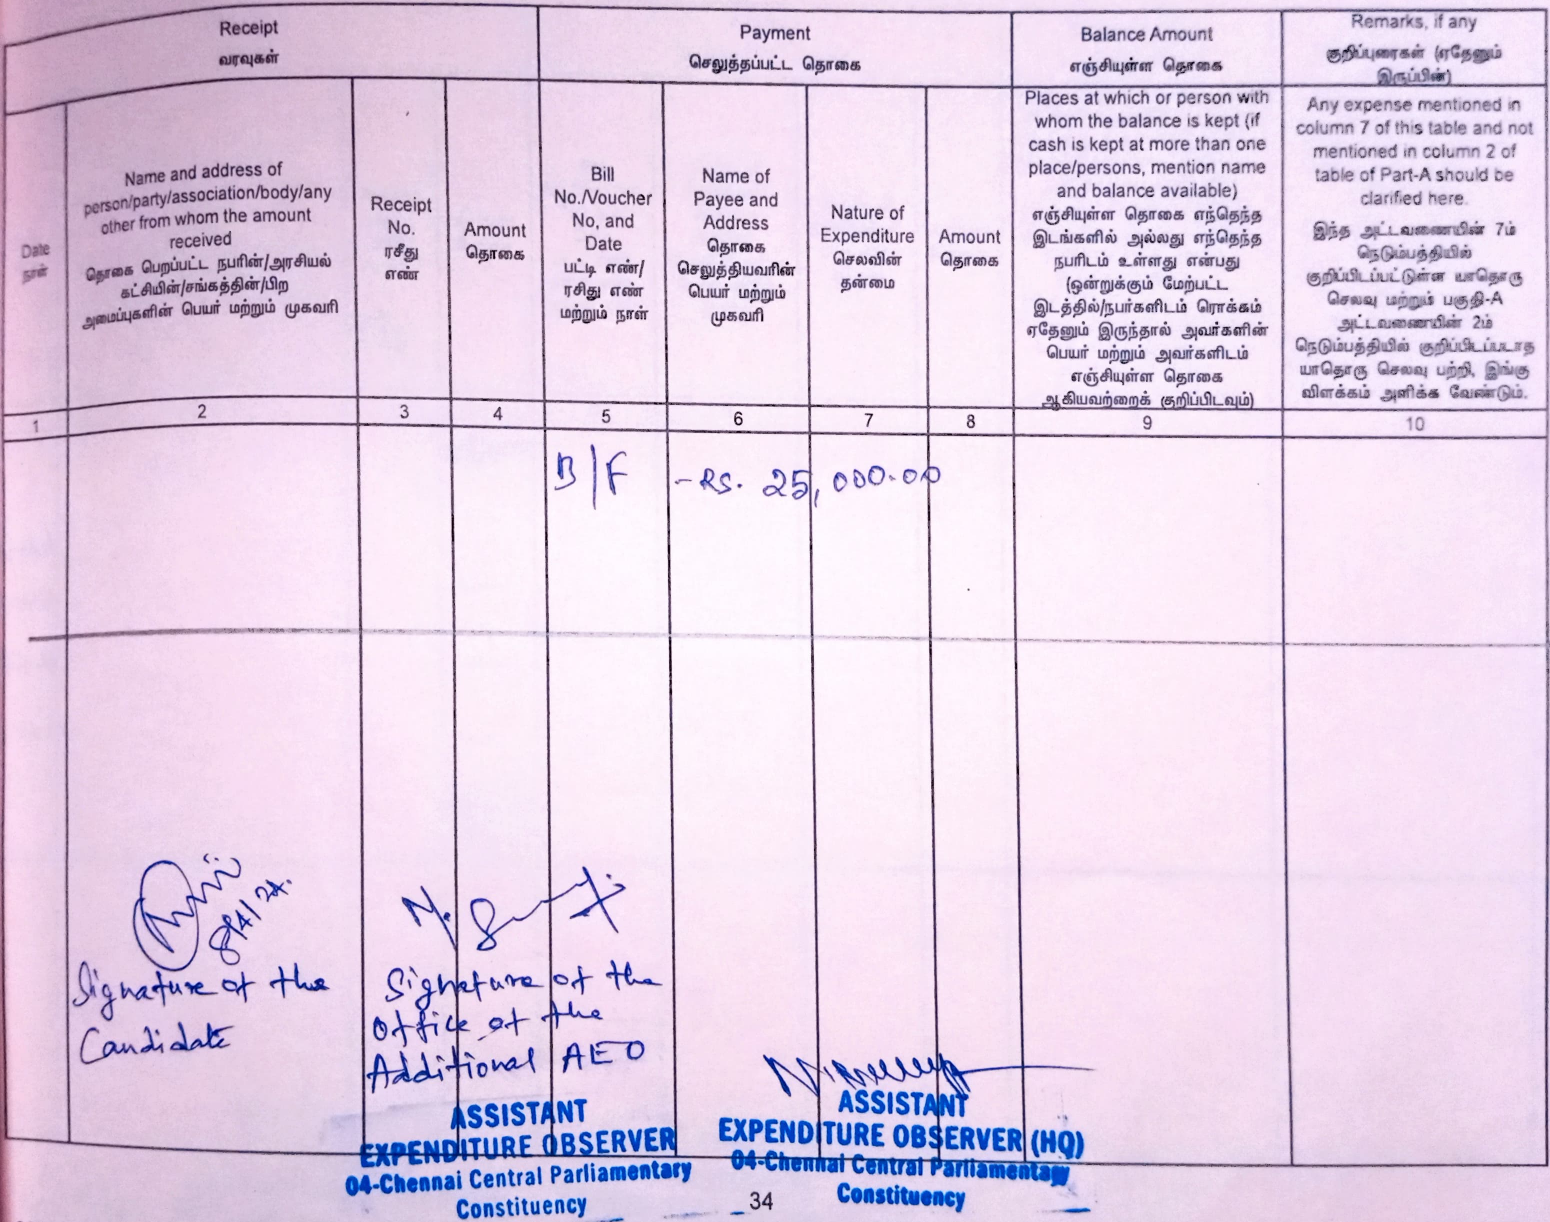 Receipt
வரவுகள்
Payment
செலுத்தப்பட்ட தொகை
Balance Amount
எஞ்சியுள்ள தொகை
Remarks, if any
குறிப்புரைகள் (ஏதேனும்
இருப்பின்)
Date
நாள்
Name and address of
person/party/association/body/any
other from whom the amount
received
தொகை பெறப்பட்ட நபரின்/அரசியல்
கட்சியின்/சங்கத்தின்/பிற
அமைப்புகளின் பெயர் மற்றும் முகவரி
Receipt
No.
ரசீது
எண்
Amount
தொகை
Bill
No./Voucher
No, and
Date
பட்டி எண்/
ரசிது எண்
மற்றும் நாள்
Name of
Payee and
Address
தொகை
செலுத்தியவரின்
பெயர் மற்றும்
முகவரி
Nature of
Expenditure
செலவின்
தன்மை
Amount
தொகை
Places at which or person with
whom the balance is kept (if
cash is kept at more than one
place/persons, mention name
and balance available)
எஞ்சியுள்ள தொகை எந்தெந்த
இடங்களில் அல்லது எந்தெந்த
நபரிடம் உள்ளது என்பது
(ஒன்றுக்கும் மேற்பட்ட
இடத்தில்/நபர்களிடம் ரொக்கம்
ஏதேனும் இருந்தால் அவர்களின்
பெயர் மற்றும் அவர்களிடம்
எஞ்சியுள்ள தொகை
ஆகியவற்றைக் குறிப்பிடவும்)
Any expense mentioned in
column 7 of this table and not
mentioned in column 2 of
table of Part-A should be
clarified here.
இந்த அட்டவணையின் 7ம்
நெடும்பத்தியில்
குறிப்பிடப்பட்டுள்ள யாதொரு
செலவு மற்றும் பகுதி-A
அட்டவணையின் 2ம்
நெடும்பத்தியில் குறிப்பிடப்படாத
யாதொரு செலவு பற்றி, இங்கு
விளக்கம் அளிக்க வேண்டும்.
1 2 3 4 5 6 7 8 9 10
B/F - Rs. 25,000.00
8/4/24.
Signature of the
Candidate
Signature of the
Office of the
Additional AEO
ASSISTANT
EXPENDITURE OBSERVER
04-Chennai Central Parliamentary
Constituency
ASSISTANT
EXPENDITURE OBSERVER (HQ)
04-Chennai Central Parliamentary
Constituency
34